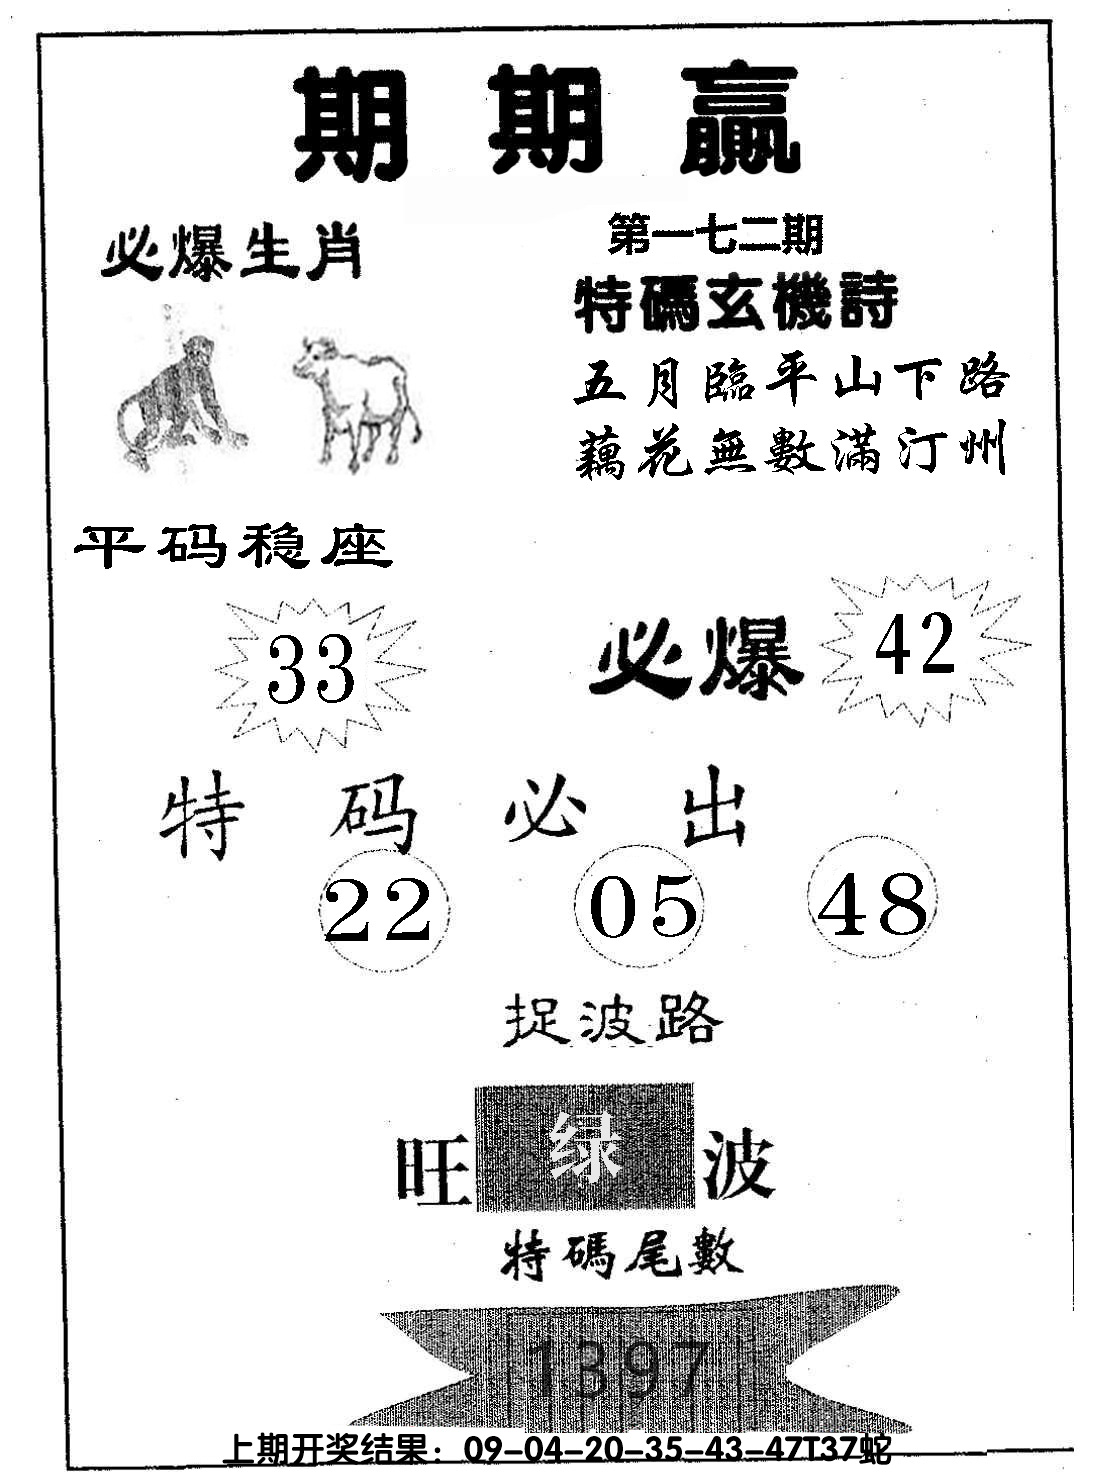 期期贏
必爆生肖
第一七二期
特碼玄機詩
五月臨平山下路
藕花無數滿汀州
平码稳座
33
必爆
42
特码必出
22 05 48
捉波路
旺绿波
特碼尾數
1397
上期开奖结果：09-04-20-35-43-47T37蛇